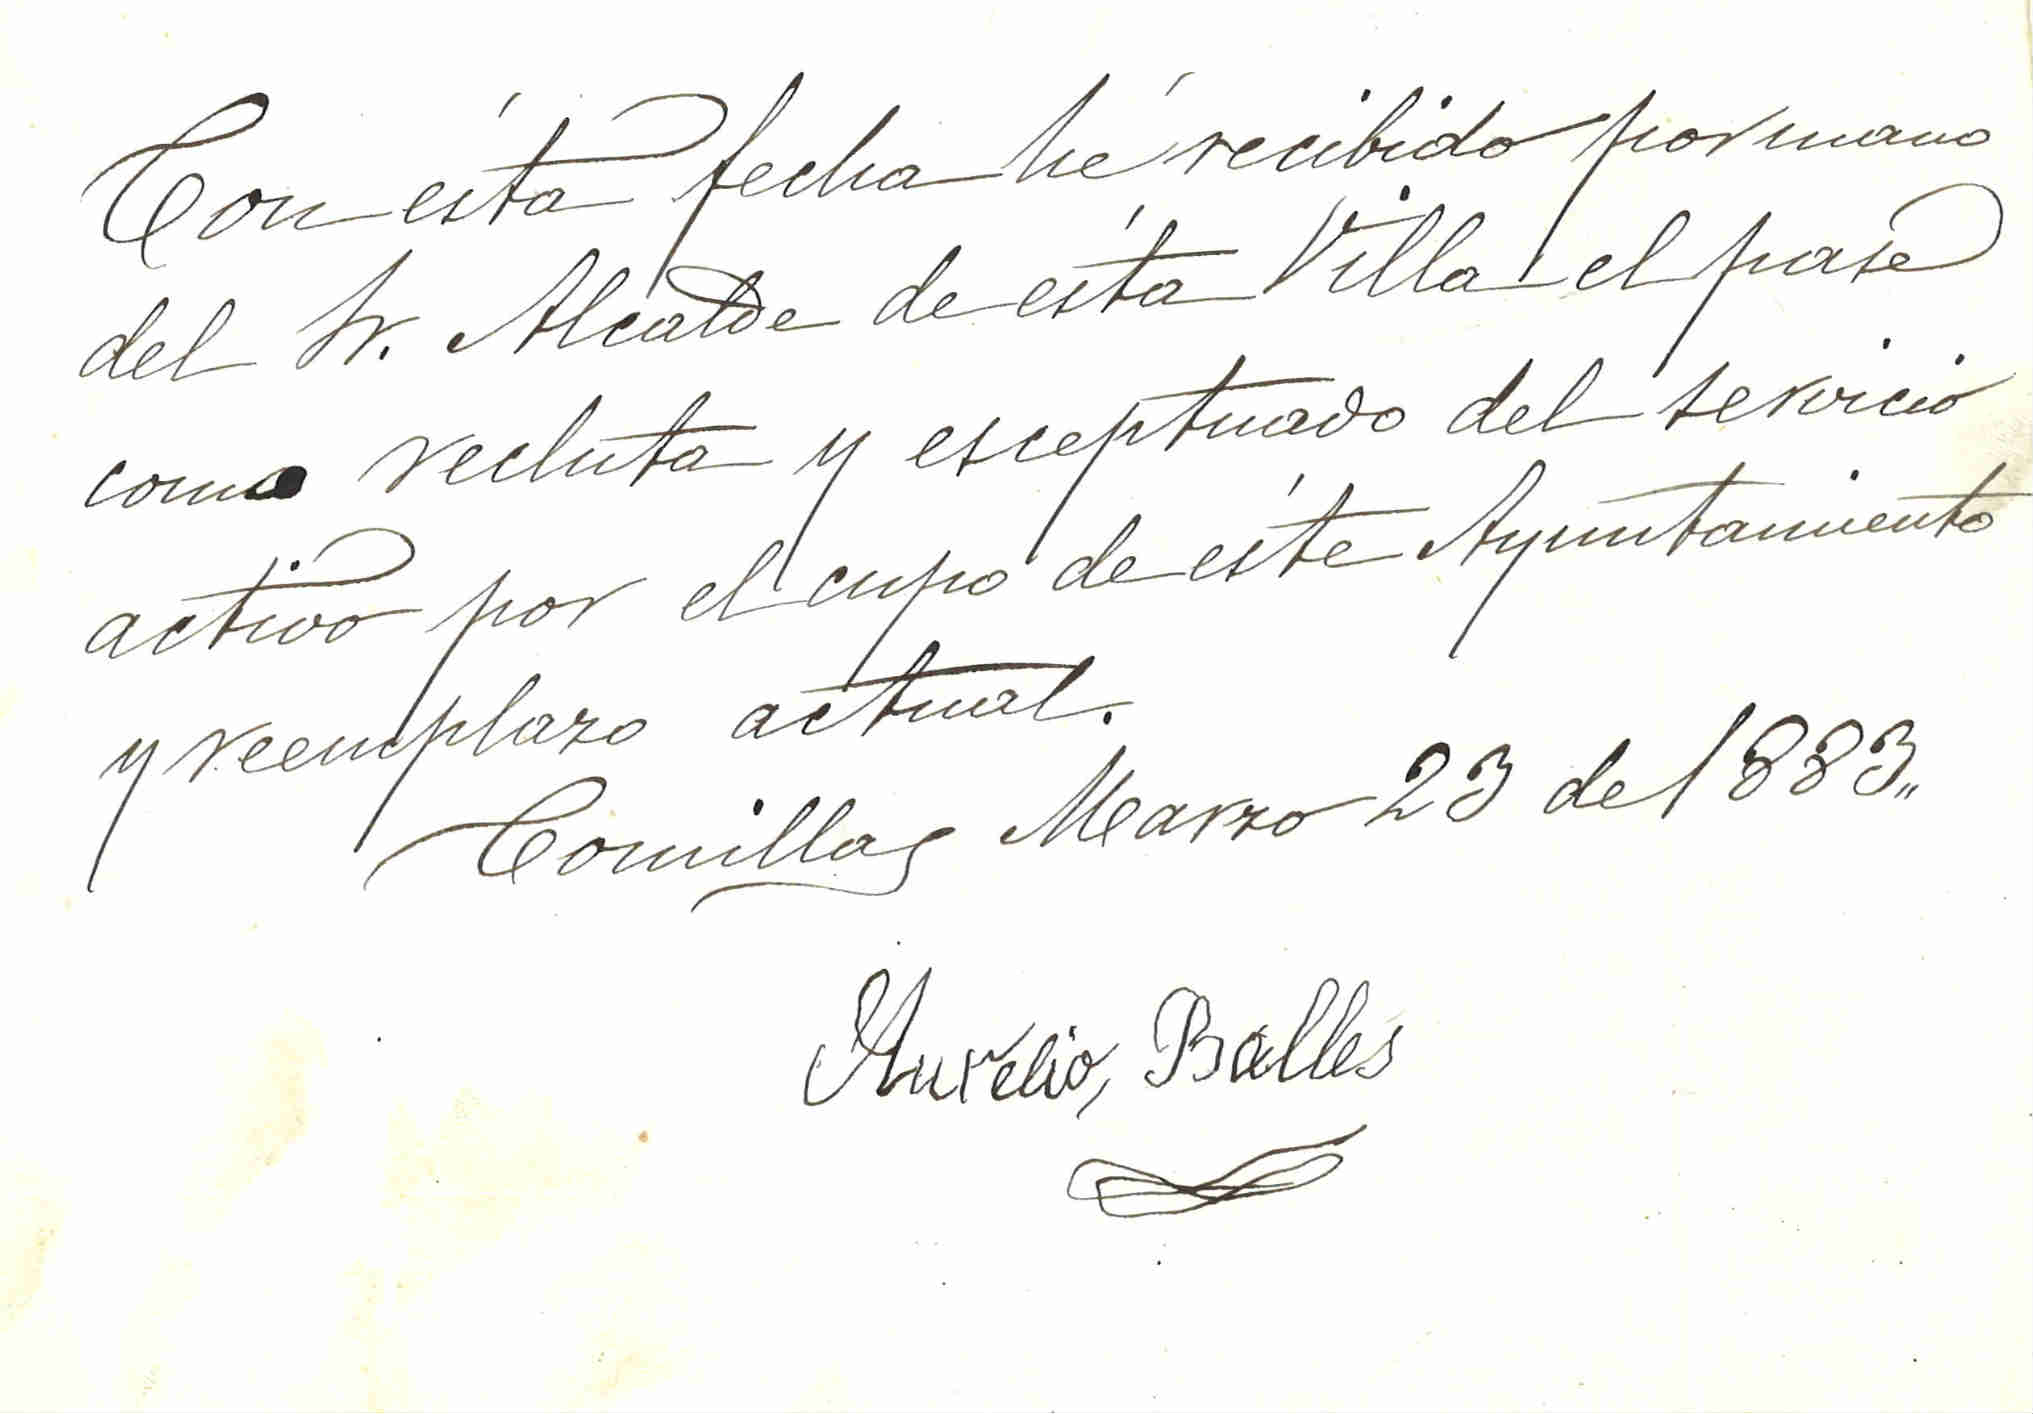 Con ésta fecha hé recibido por mano
del Sr. Alcalde de ésta Villa el pase
como recluta y esceptuado del servicio
activo por el cupo de éste Ayuntamiento
y reemplazo actual.
Comillas Marzo 23 de 1883,,
Aurelio, Balles